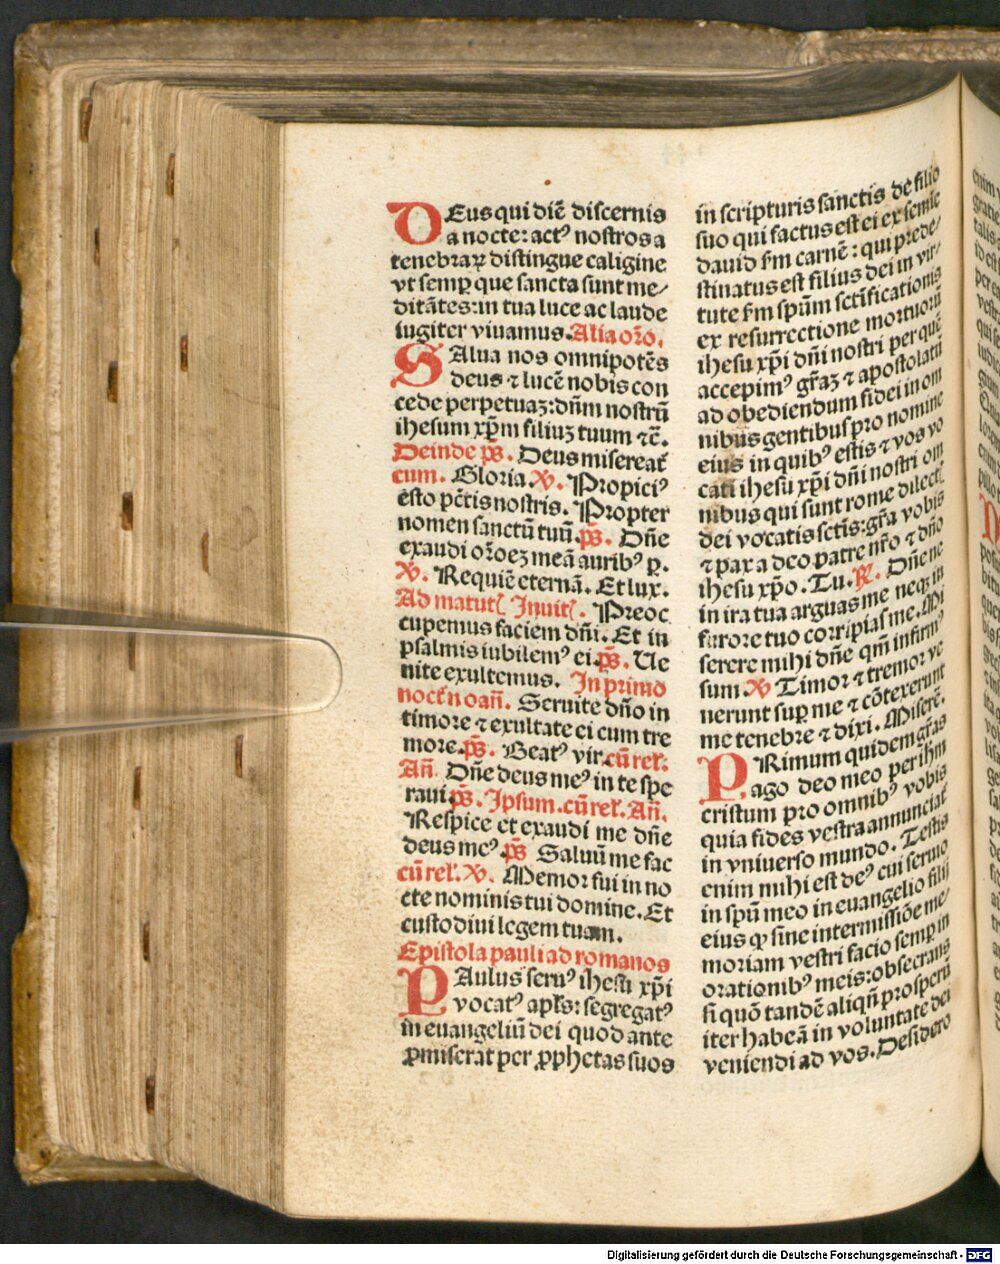 DEus qui diē discernis
a nocte: actꝰ nostros a
tenebraꝝ distingue caligine
vt semꝑ que sancta sunt me⸗
ditātes: in tua luce ac laude
iugiter viuamus. Alia oꝛo.
SAlua nos omnipotēs
deus ⁊ lucē nobis con
cede perpetuaꝫ: dn̄m nostrū
ihesum xp̄m filiuꝫ tuum ⁊c̄.
Deinde ps̄. Deus misereat᷑
cum. Gloria. ℣. Propiciꝰ
esto pc̄tis nostris. Propter
nomen sanctū tuū. ps̄. Dn̄e
exaudi oꝛōeꝫ meā auribꝰ p.
℣. Requiē eternā. Et lux.
Ad matut᷑ Inuit᷑. Preoc
cupemus faciem dn̄i. Et in
psalmis iubilemꝰ ei. ps̄. Ue
nite exultemus. In primo
noct̄n oan̄. Seruite dn̄o in
timore ⁊ exultate ei cum tre
more. ps̄. Beatꝰ vir. cū rel᷑:
An̄. Dn̄e deus meꝰ in te spe
raui. ps̄. Ipsum. cū rel᷑. An̄.
Respice et exaudi me dn̄e
deus meꝰ. ps̄ Saluū me fac
cū rel᷑. ℣. Memor fui in no
cte nominis tui domine. Et
custodiui legem tuam.
Epistola pauli ad romanos
PAulus seruꝰ ihesu xp̄i
vocatꝰ apl̄s: segregatꝰ
in euangeliū dei quod ante
ꝓmiserat per ꝓphetas suos
in scripturis sanctis de filio
suo qui factus est ei ex semīe
dauid fm̄ carnē: qui prede⸗
stinatus est filius dei in vir⸗
tute fm̄ spūm sc̄tificationis
ex resurrectione mortuorū
ihesu xp̄i dn̄i nostri per quē
accepimꝰ gr̄aꝫ ⁊ apostolatū
ad obediendum fidei in om
nibus gentibus pro nomine
eius in quibꝰ estis ⁊ vos vo
cati ihesu xp̄i dn̄i nostri om
nibus qui sunt rome dilect᷑
dei vocatis sc̄tis: gr̄a vobis
⁊ pax a deo patre nr̄o ⁊ dn̄o
ihesu xp̄o. Tu. ℟. Dn̄e ne
in ira tua arguas me neqꝫ in
furore tuo corripias me. Mi
serere mihi dn̄e qm̄ infirmꝰ
sum ℣ Timor ⁊ tremor ve
nerunt suꝑ me ⁊ cōtexerunt
me tenebre ⁊ dixi. Miserē.
PRimum quidem gr̄as
ago deo meo per ih̄m
cristum pro omnibꝰ vobis
quia fides vestra annunciat᷑
in vniuerso mundo. Testis
enim mihi est deꝰ cui seruio
in spū meo in euangelio filij
eius ꝙ sine intermissiōe me⸗
moriam vestri facio semꝑ in
orationibꝰ meis: obsecrans
si quō tandē aliqn̄ prosperū
iter habeā in voluntate dei
veniendi ad vos. Desidero
Digitalisierung gefördert durch die Deutsche Forschungsgemeinschaft - DFG